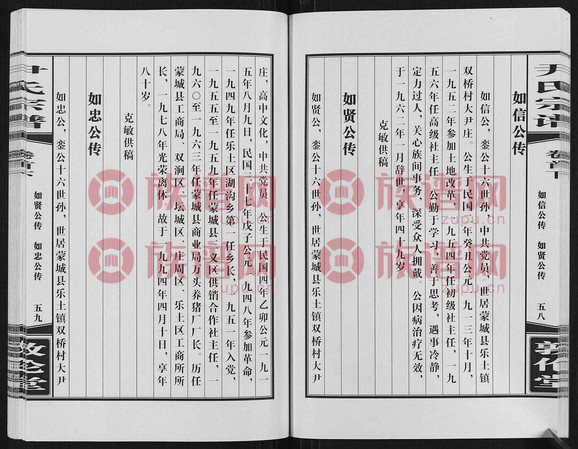 尹氏宗谱
卷首下
如信公传 如贤公传
五八
敦伦堂
如信公传
如信公，銮公十六世孙，中共党员，世居蒙城县乐土镇
双桥村大尹庄。公生于民国二年癸丑公元一九一三年十月，
一九五二年参加土地改革，一九五四年任初级社主任，一九
五六年任高级社主任。公勤于学习，善于思考，遇事冷静，
定力过人，关心族间事务，深受众人拥戴。公因病治疗无效，
于一九六二年一月辞世，享年四十九岁。
克敏供稿
如贤公传
如贤公，銮公十六世孙，世居蒙城县乐土镇双桥村大尹
庄，高中文化，中共党员。公生于民国四年乙卯公元一九一
五年八月九日，民国三十七年戊子公元一九四八年参加革命，
一九四九年任乐土区湖沟乡第一任乡长，一九五一年入党，
一九五五至一九五九年任蒙城县三义区供销合作社主任，一
九六〇至一九六三年任蒙城县商业局万头养猪厂厂长。历任
蒙城县工商局、双涧区、坛城区、庄周区、乐土区工商所所
长，一九七八年光荣离休。故于一九九四年四月十日，享年
八十岁。
克敏供稿
如忠公传
如忠公，銮公十六世孙，世居蒙城县乐土镇双桥村大尹
尹氏宗谱
卷首下
如贤公传 如忠公传
五九
敦伦堂
族谱网
zupu.cn